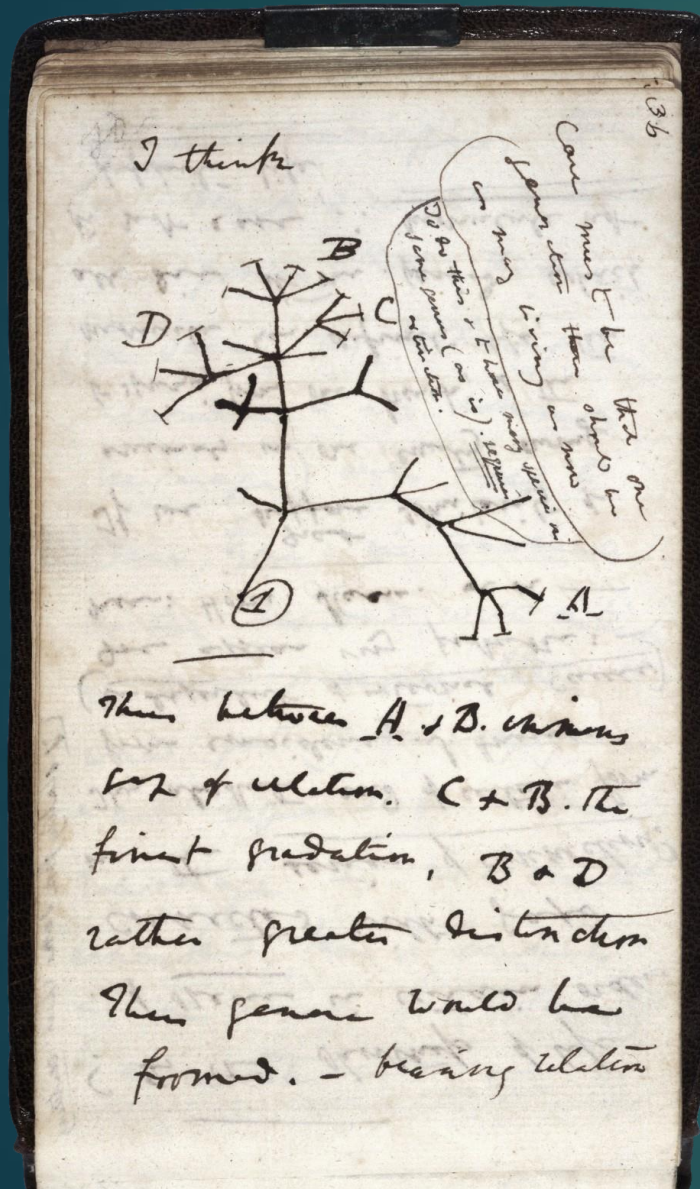 36
I think
Case must be that one
generation then should be
as many living as now
To do this & to have many species in
same genus (as is) requires
extinction.
B
C
D
A
1
Thus between A & B. immens
gap of relation. C & B. The
finest gradation, B & D
rather greater distinction
Thus genera would be
formed. — bearing relation